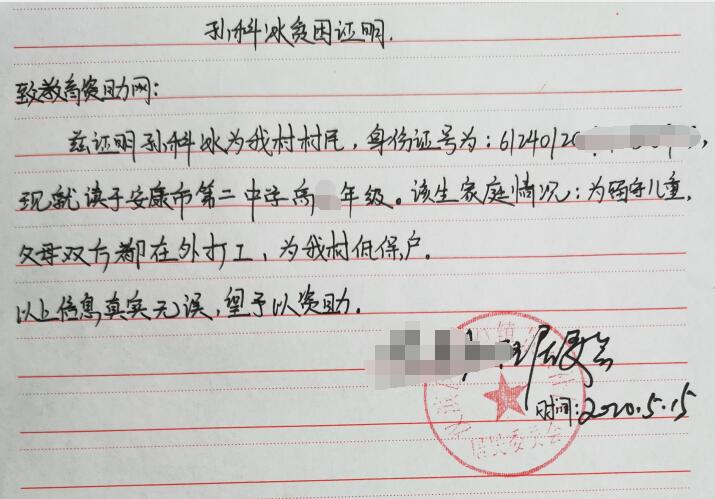 孙科冰贫困证明.
致教育资助网:
兹证明孙科冰为我村村民，身份证号为：6124012
现就读于安康市第二中学高 年级。该生家庭情况：为留守儿童，
父母双方都在外打工，为我村低保户。
以上信息真实无误，望予以资助。
居委会
时间:2020.5.15
镇
居民委员会